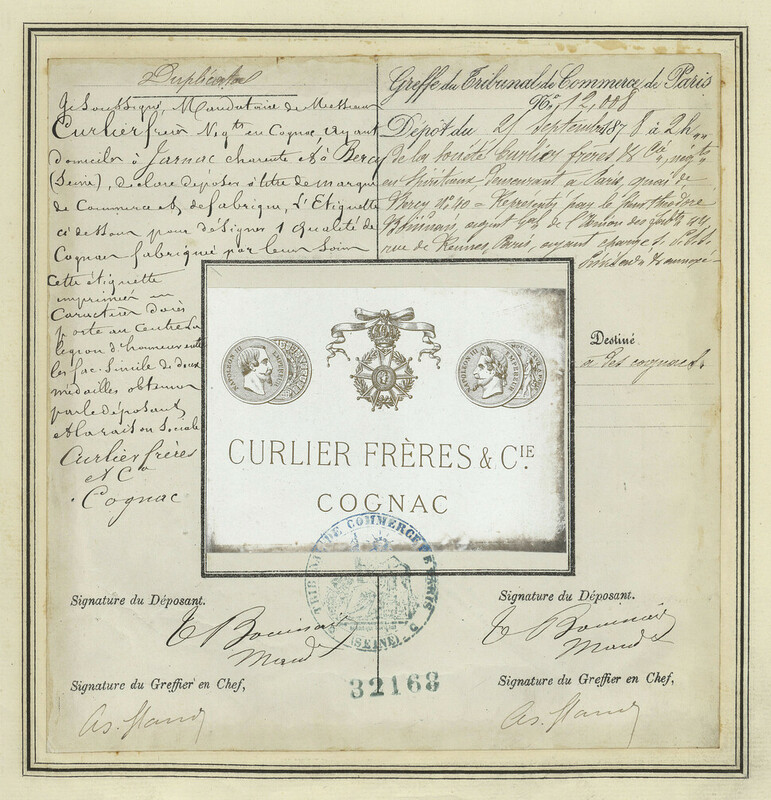 Duplicata
Je Soussigné, Mandataire de Messieurs
Curlier frères Negts en Cognac, ayant
domicile à Jarnac charente et à Bercy
(Seine), declare deposer à titre de marque
de Commerce et de fabrique, L'Etiquette
ci dessous pour désigner 1 qualité de
Cognac fabriqué par leurs soins
Cette étiquette
imprimée en
Caractères dorés
porte au centre la
légion d'honneur entre
les fac. Similé de deux
médailles obtenues
par le déposant
et la raison Sociale
Curlier frères
et Co
Cognac
Greffe du Tribunal de Commerce de Paris
No. 12,008
Dépôt du 21 Septembre 1878 à 2h
de la Société Curlier frères & Cie, négts
en Spiritueux, demeurant à Paris quai de
Bercy No. 40 = Représentés par le sieur
agent de l'Union des
rue de Rennes, Paris, ayant charge
Destiné
à des cognacs
NAPOLEON III EMPEREUR
NAPOLEON III EMPEREUR
CURLIER FRÈRES & CIE.
COGNAC
TRIBUNAL DE COMMERCE DE PARIS
(SEINE)
Signature du Déposant.
Signature du Déposant.
32168
Signature du Greffier en Chef,
Signature du Greffier en Chef,